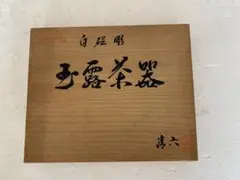 白磁彫
玉露茶器
清六